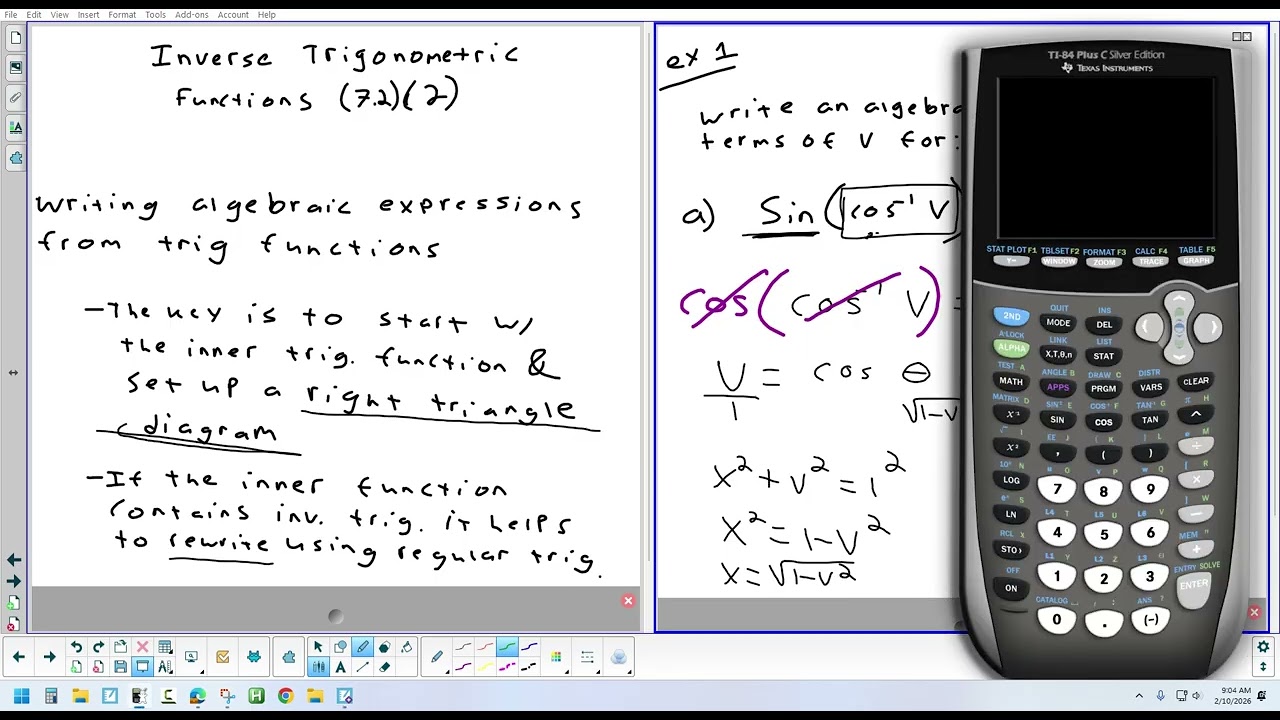 File Edit View Insert Format Tools Add-ons Account Help
Inverse Trigonometric
Functions (7.2)(2)
Writing algebraic expressions
from trig functions
-The key is to start w/
the inner trig. function &
set up a right triangle
diagram
-If the inner function
contains inv. trig. it helps
to rewrite using regular trig.
ex 1
write an algebra
terms of V for:
a) Sin(cos⁻¹ V)
cos(cos⁻¹ V) =
V/1 = cos θ
√1-V
x² + v² = 1²
x² = 1-v²
x = √1-v²
TI-84 Plus C Silver Edition
TEXAS INSTRUMENTS
STAT PLOT F1 TBLSET F2 FORMAT F3 CALC F4 TABLE F5
Y= WINDOW ZOOM TRACE GRAPH
QUIT INS
2ND MODE DEL
A-LOCK LINK LIST
ALPHA X,T,θ,n STAT
TEST A ANGLE B DRAW C DISTR
MATH APPS PRGM VARS CLEAR
MATRIX D SIN⁻¹ E COS⁻¹ F TAN⁻¹ G π H
X⁻¹ SIN COS TAN ^
√ I EE J { K } L e M
X² , ( ) ÷
10ˣ N u O v P w Q [ R
LOG 7 8 9 ×
eˣ S L4 T L5 U L6 V ] W
LN 4 5 6 −
RCL X L1 Y L2 Z L3 θ MEM "
STO› 1 2 3 +
OFF CATALOG ⎵ i : ANS ? ENTRY SOLVE
ON 0 . (-) ENTER
9:04 AM
2/10/2026